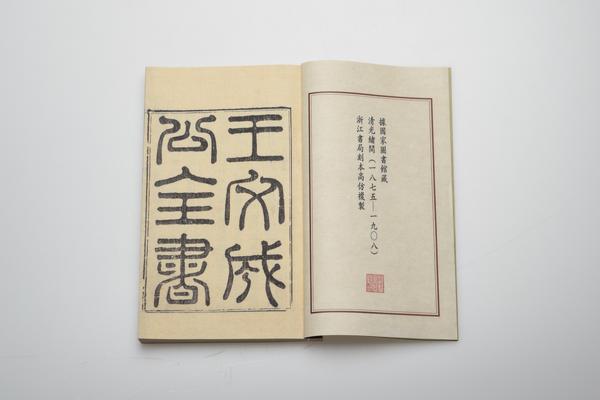 據國家圖書館藏
清光緒間（一八七五—一九〇八）
浙江書局刻本高仿複製
王文成
公全書